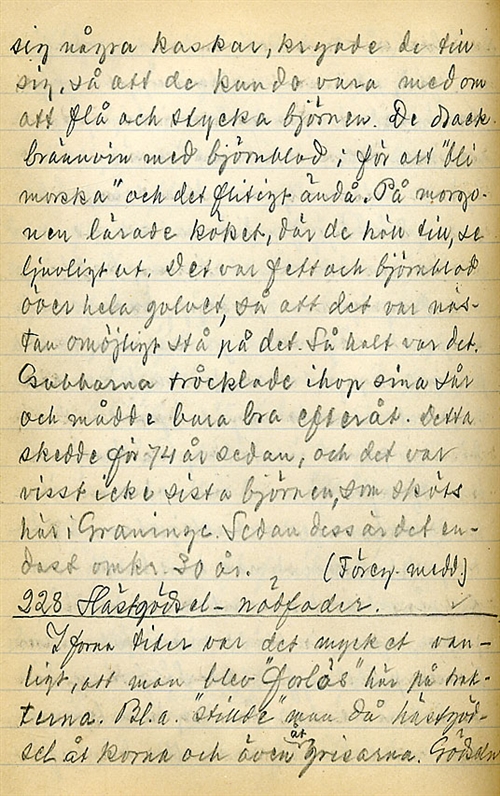 sig några kaskar, kryade de till
sig, så att de kunde vara med om
att flå och stycka björnen. De drack
brännvin med björnblod i för att "bli
morska" och det flitigt ändå. På morgo-
nen lärade koket, där de höll till, se
ljuvligt ut. Det var fett och björnblod
över hela golvet, så att det var näs-
tan omöjligt stå på det. Så halt var det.
Gubbarna tråcklade ihop sina sår
och mådde bara bra efteråt. Detta
skedde för 74 år sedan, och det var
visst icke sista björnen, som sköts
här i Graninge. Sedan dess är det en-
dast omkr. 30 år. (Föreg. medd.)
228 Hästgödsel - nödfoder.
I forna tider var det mycket van-
ligt, att man blev "forlös" här på trak-
terna. Bl.a. "stillde" man då hästgöd-
sel åt korna och även åt grisarna. Gödseln